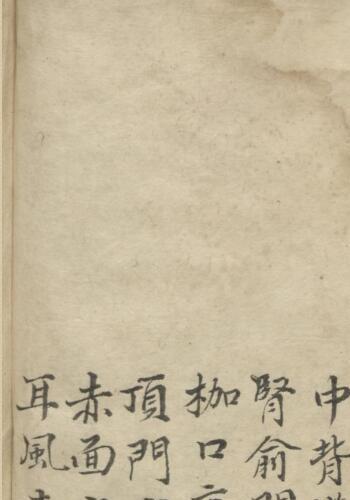 中背
腎俞
枷口
頂門
赤面
耳風